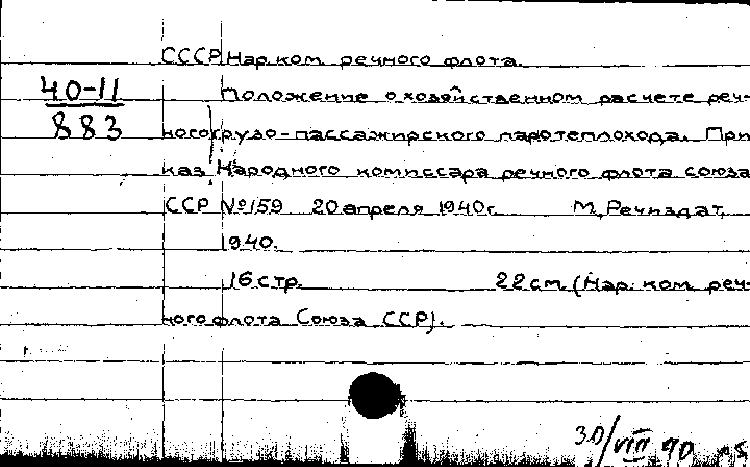 СССР Нар. ком. речного флота.
40-11
883
Положение о хозяйственном расчете реч-
ного грузо-пассажирского паротеплохода. При
каз Народного комиссара речного флота союза
ССР №159 20 апреля 1940г. М, Речиздат,
1940.
16 стр. 22 см. (Нар. ком. реч-
ного флота Союза ССР).
30/VIII 40